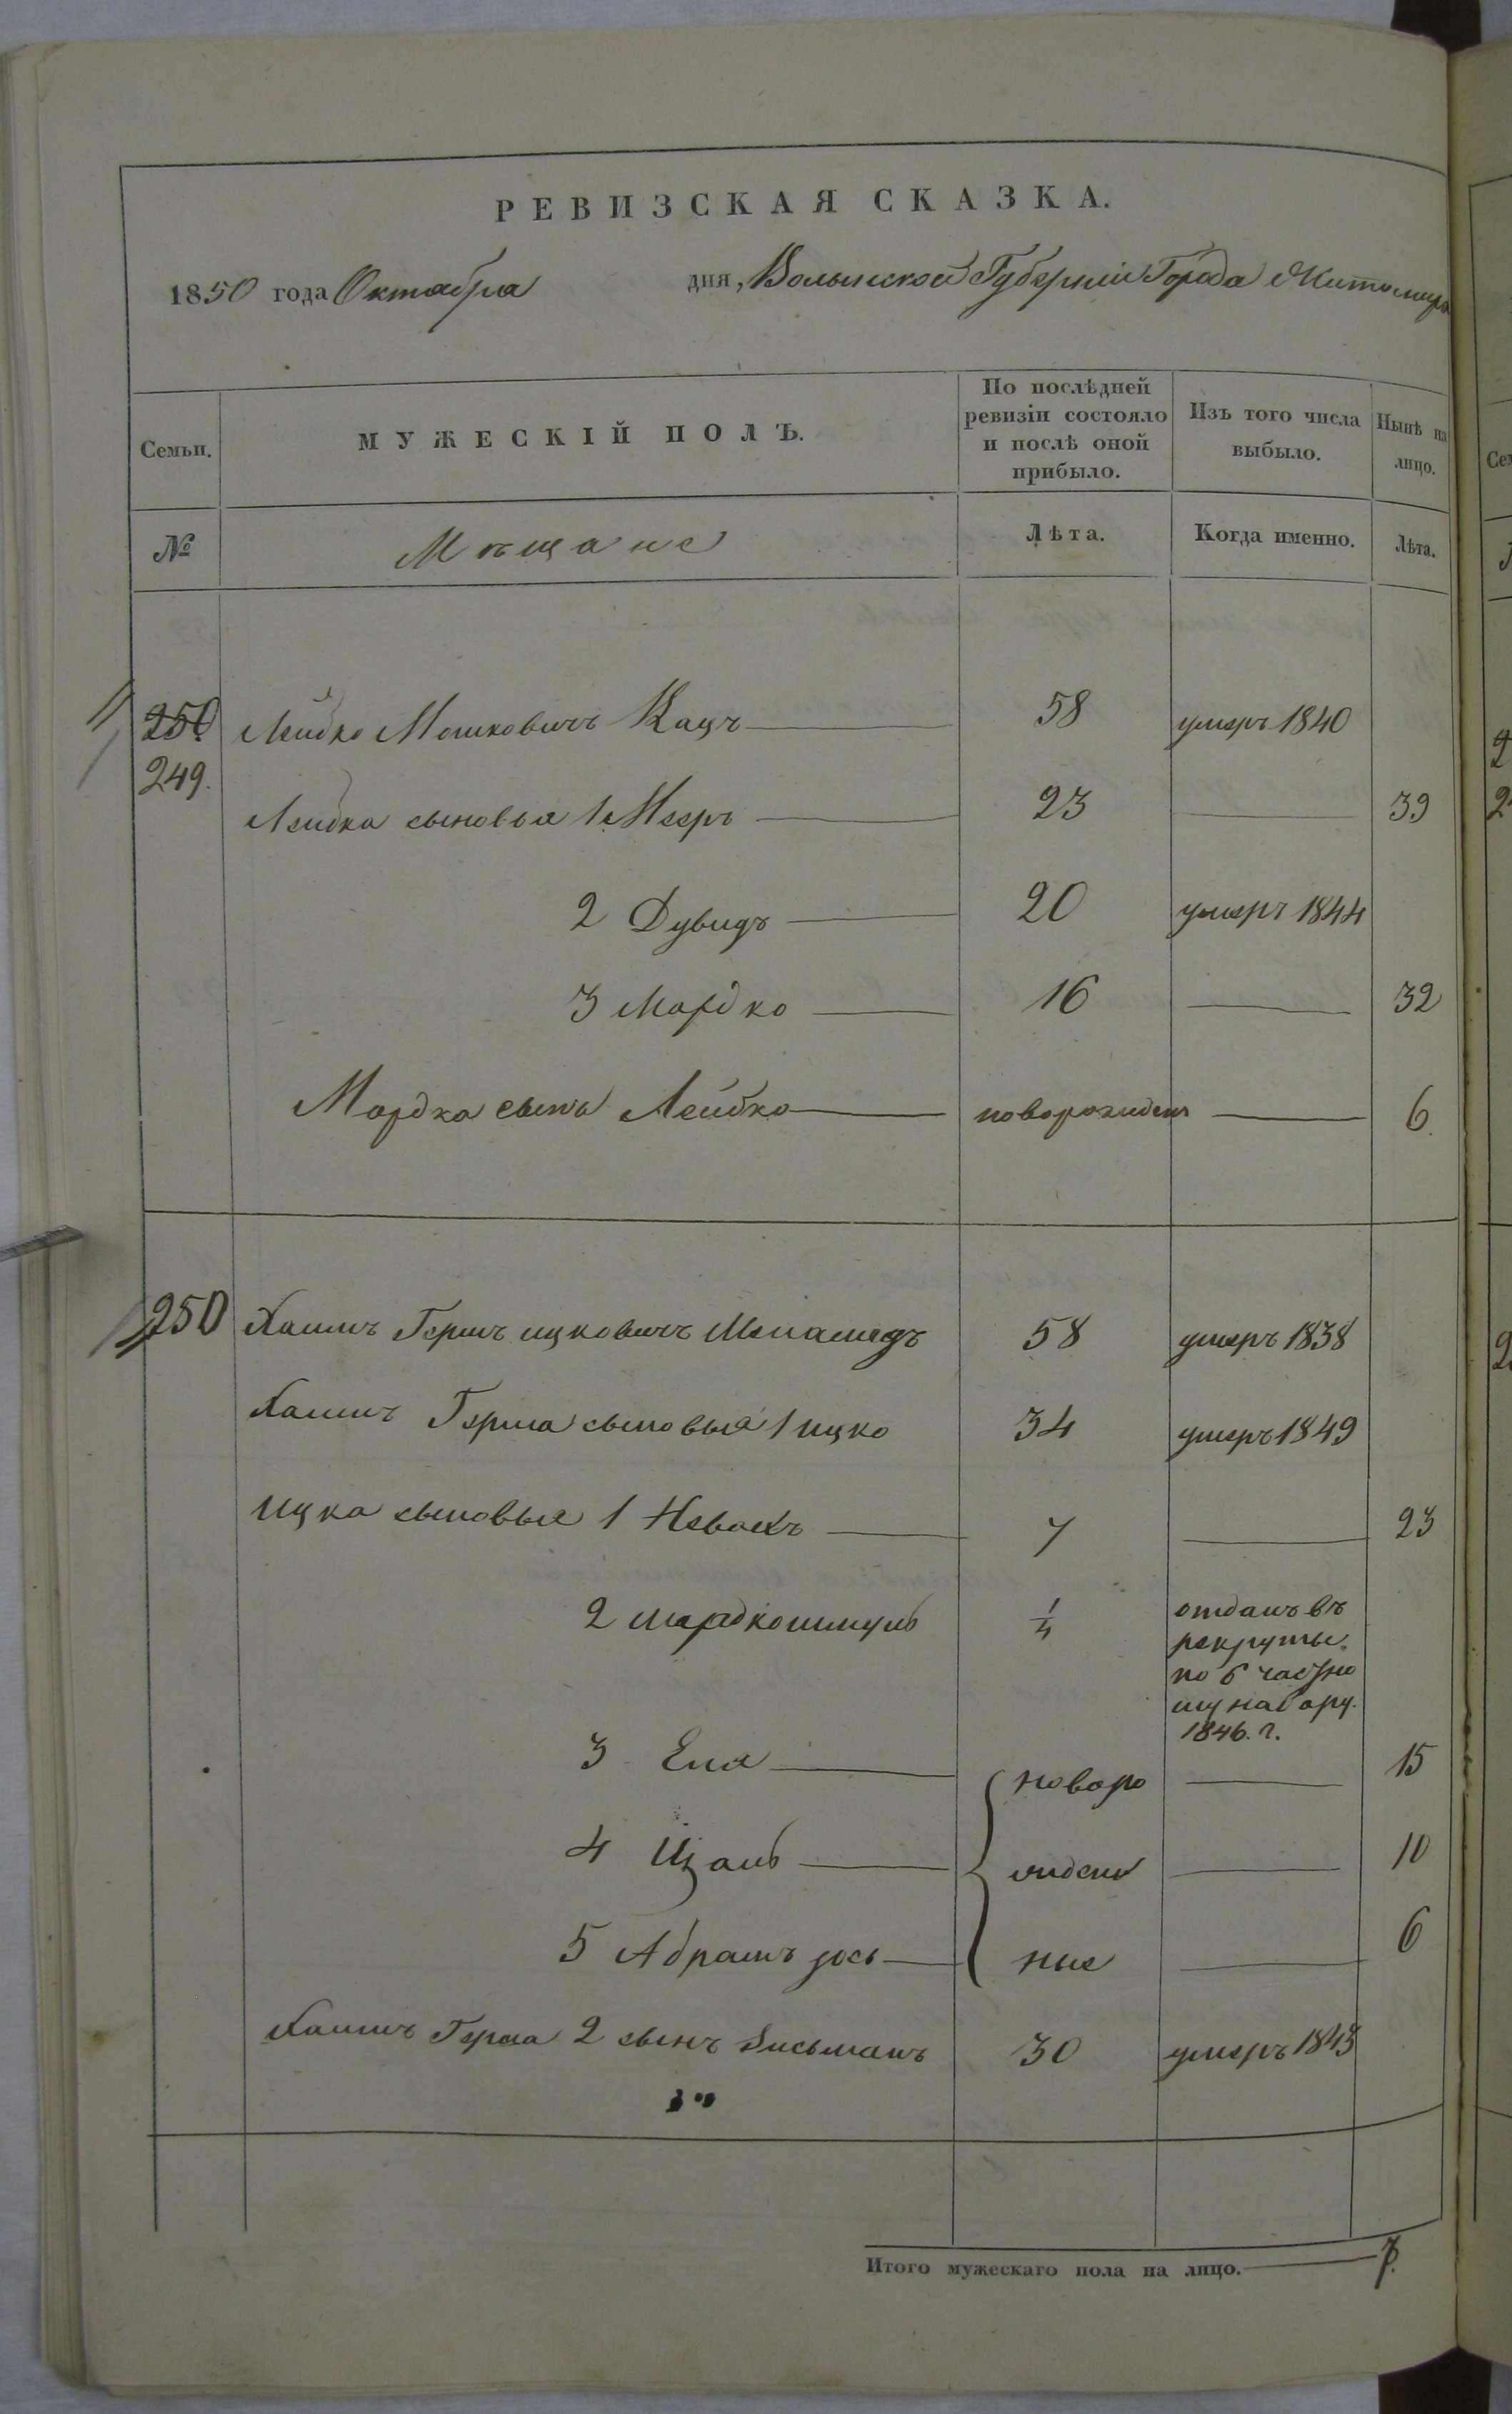 РЕВИЗСКАЯ СКАЗКА.
1850 года Октабра дня, Волынской Губерніи Города Житомира
Семьи. МУЖЕСКІЙ ПОЛЪ. По послѣдней ревизіи состояло и послѣ оной прибыло. Изъ того числа выбыло. Нынѣ на лицо.
№ Мѣщане Лѣта. Когда именно. Лѣта.
250 Лейбко Мошковичъ Кацъ 58 умеръ 1840
249.
Лейбка сыновья 1 Мееръ 23 39
2 Дувидъ 20 умеръ 1844
3 Мордко 16 32
Мордка сынъ Лейбко новорожден 6.
250 Хаимъ Гершъ ицковичъ Меламедъ 58 умеръ 1838
Хаимъ Герша сыновья 1 ицко 34 умеръ 1849
ицка сыновья 1 7 23
2 мордкошмуль 1/4 отданъ въ
рекруты
по 6 частно
му набору.
1846. г.
3 Еля новоро 15
4 жден 10
5 Абрамъ 6
ные
Хаимъ Герша 2 сынъ Зисьманъ 30 умеръ 1843
Итого мужескаго пола на лицо. 7.